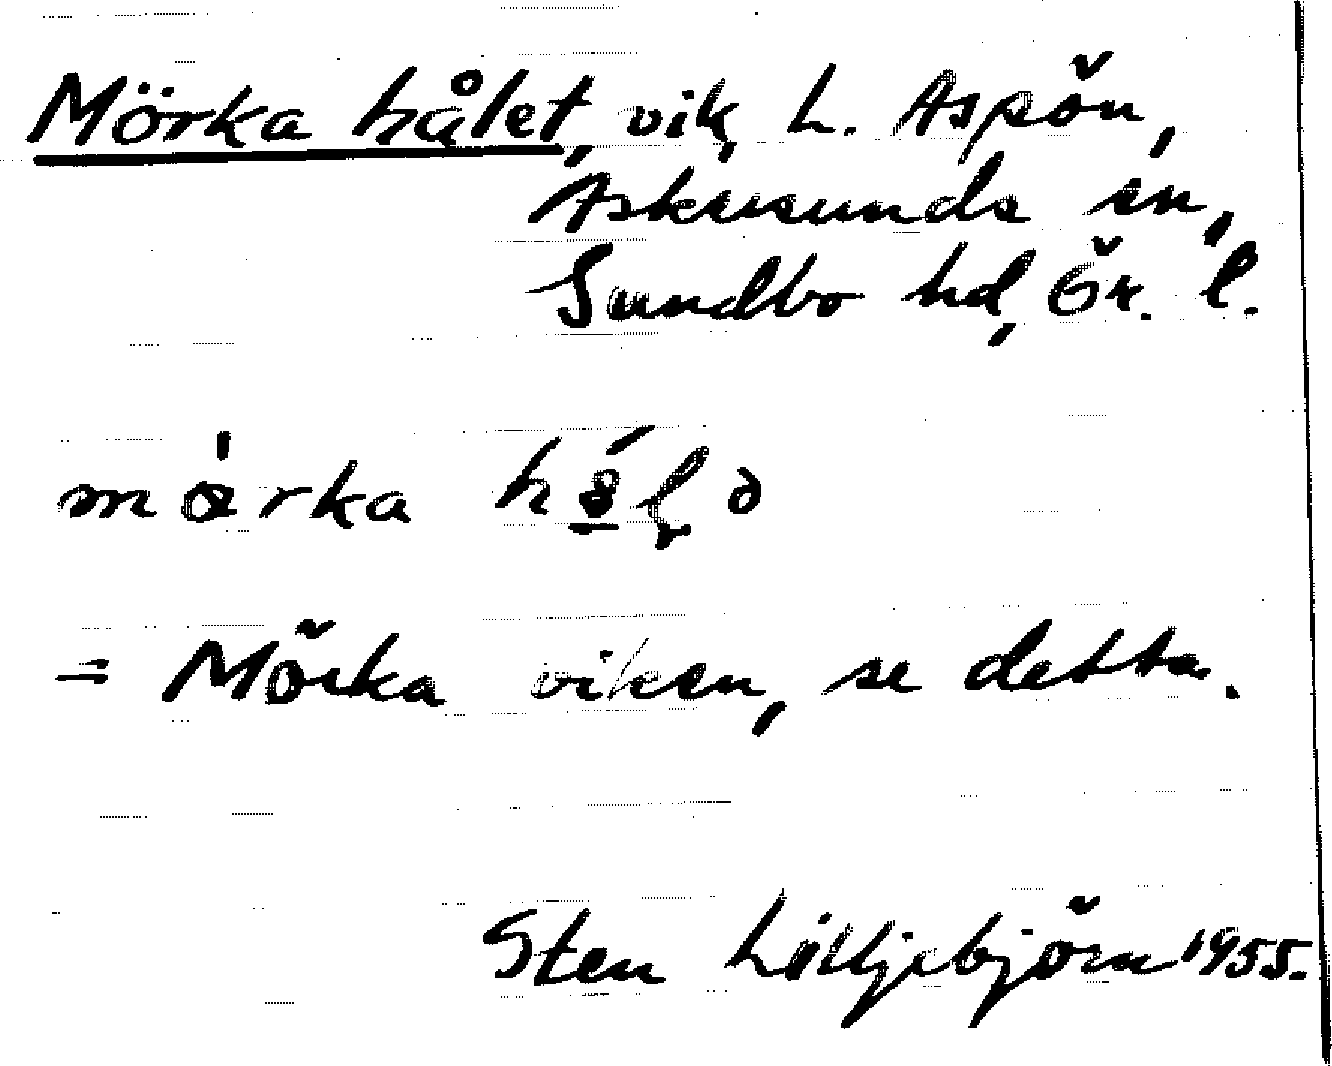 Mörka hålet, vik, L. Aspön,
Askersunds sn,
Sundbo hd, Ör. l.
mörka
= Mörka viken, se detta.
Sten Lilljebjörn 1955.